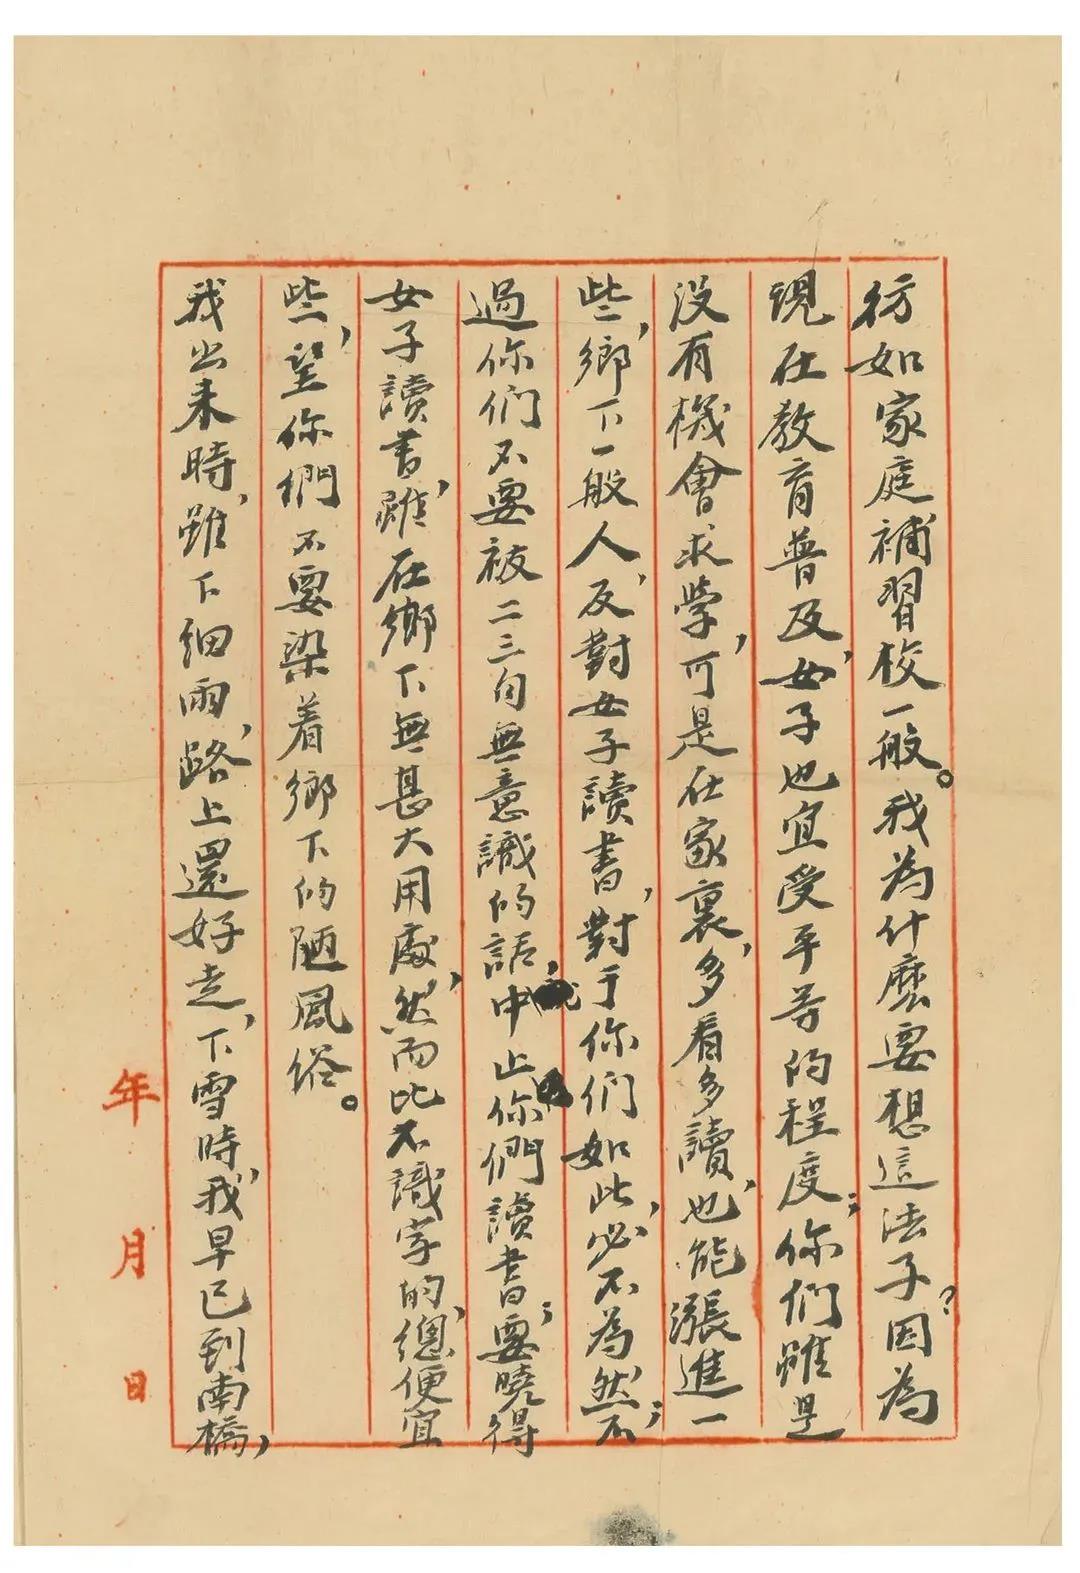 彷如家庭補習校一般。我為什麼要想這法子？因為
現在教育普及，女子也宜受平等的程度；你们雖是
没有機會求學，可是在家裏，多看多讀，也能漲進一
些，鄉下一般人，反對女子讀書，對于你们如此，必不為然；不
過你们不要被二三句無意識的話，中止你們讀書；要曉得
女子讀書，雖在鄉下無甚大用處，然而比不識字的，總便宜
些，望你們不要染着鄉下的陋風俗。
我出来時，雖下細雨，路上還好走，下雪時，我早已到南橋，
年月日